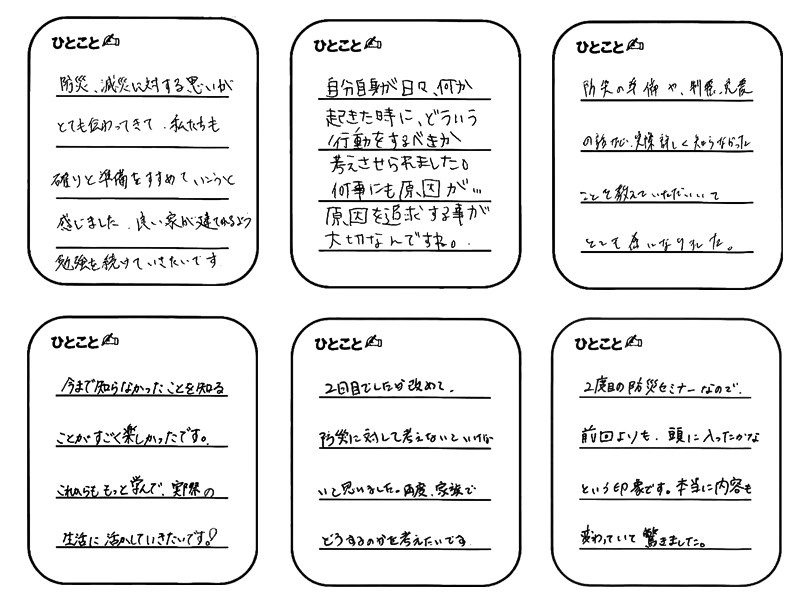 ひとこと
防災、減災に対する思いが
とても伝わってきて、私たちも
確りと準備をすすめていこうと
感じました。良い家が建てれるよう
勉強を続けていきたいです
ひとこと
自分自身が日々、何か
起きた時に、どういう
行動をするべきか
考えさせられました。
何事にも原因が…
原因を追求する事が
大切なんですね。
ひとこと
防災の準備や、制震、免震
の話など、実際詳しく知らなかった
ことを教えていただいいて
とても為になりました。
ひとこと
今まで知らなかったことを知る
ことがすごく楽しかったです。
これからももっと学んで、実際の
生活に活かしていきたいです!
ひとこと
2回目でしたが改めて、
防災に対して考えないといけな
いと思いました。再度、家族で
どうするのかを考えたいです
ひとこと
2度目の防災セミナーなので、
前回よりも、頭に入ったかな
という印象です。本当に内容も
変わっていて驚きました。